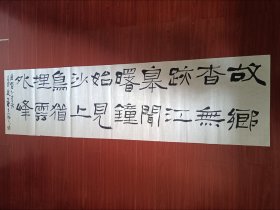 故鄉
杳無
跡江
皋聞
曙鐘
始見
沙上
鳥猶
埋雲
外峰